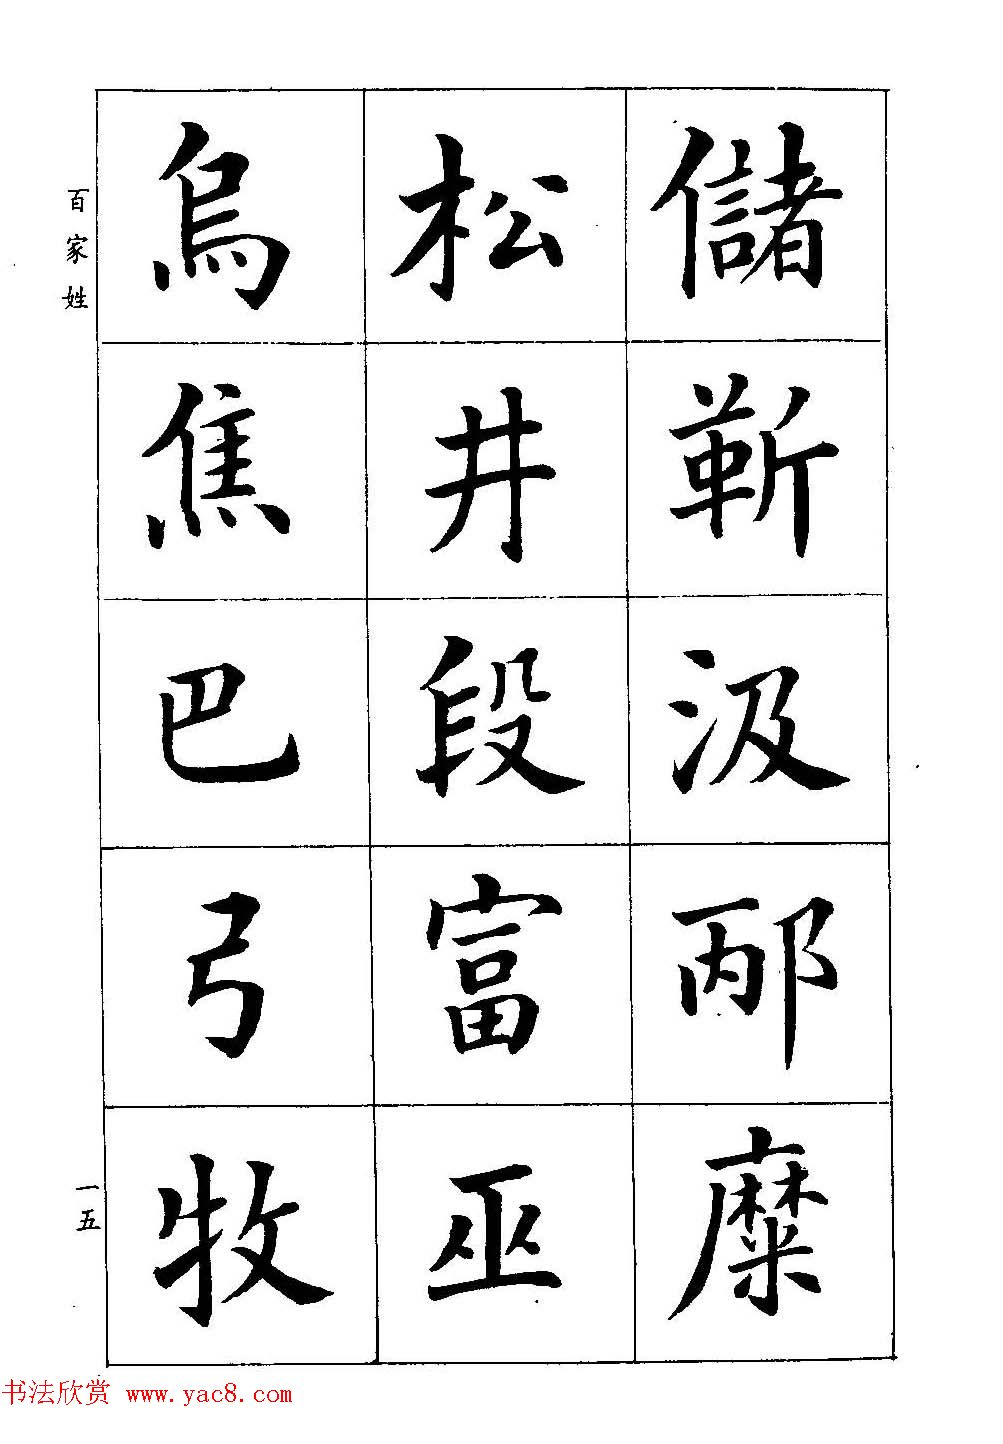 儲靳汲邴糜
松井段富巫
烏焦巴弓牧
百家姓
一五
书法欣赏 www.yac8.com